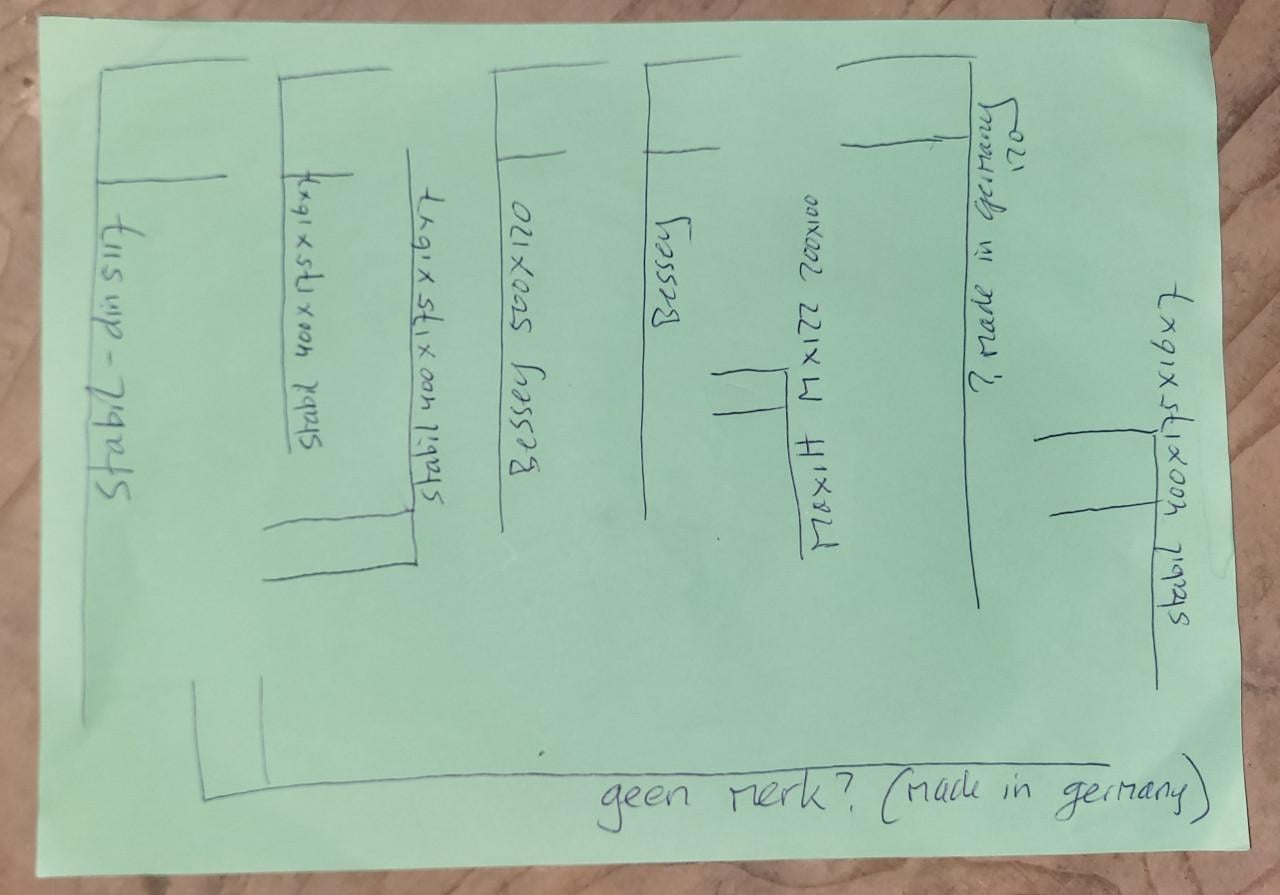 Stabil - din 5117
400x175x16x7 stabil
Stabil 400x175x16x7
Bessey 500x120
Bessey
MaxiH Mx122 200x100
? made in germany
120
stabil 400x175x16x7
geen merk? (made in germany)